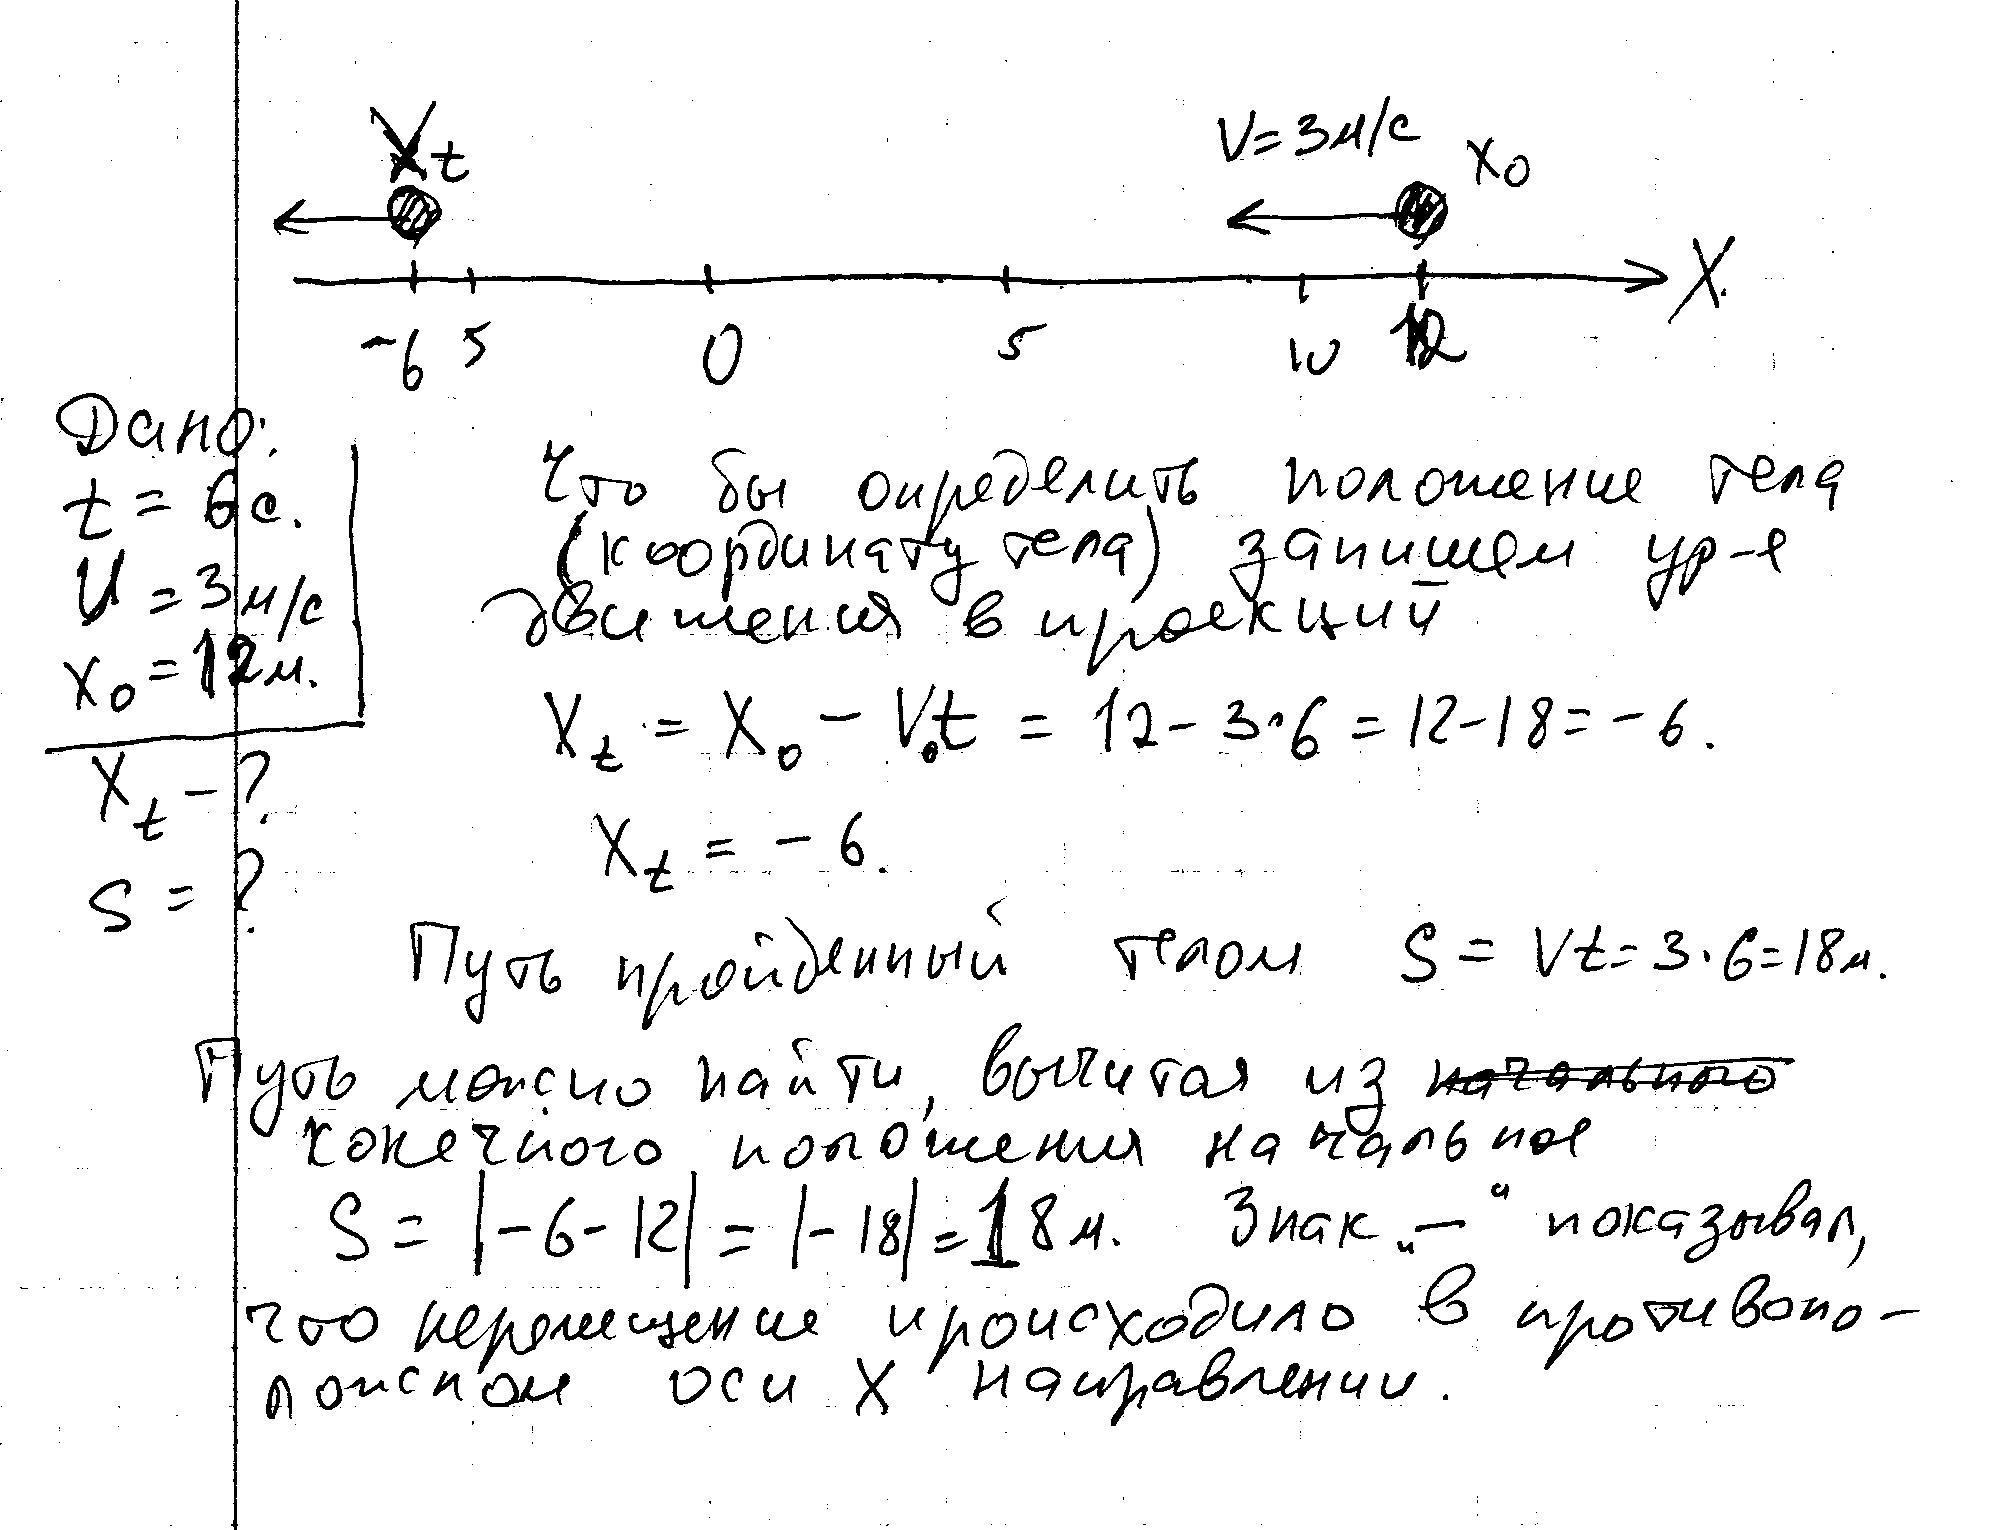 Xt V=3м/с x0
X
-6 5 0 5 10 12
Дано:
t = 6c.
U = 3м/с
x0 = 12м.
Xt - ?
S = ?
Что бы определить положение тела
(координату тела) запишем ур-е
движения в проекций
Xt = X0 - V0t = 12 - 3·6 = 12-18 = -6.
Xt = -6.
Путь пройденный телом S = Vt = 3·6 = 18м.
Путь можно найти, вычитая из начального
конечного положения начальное
S = |-6-12| = |-18| = 18м. Знак „—“ показывал,
что перемещение происходило в противопо-
ложном оси X направлении.